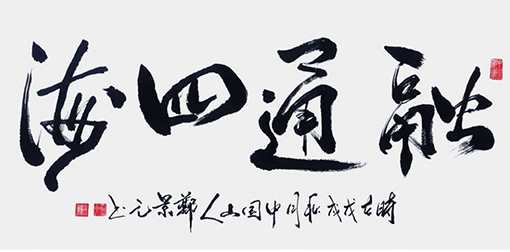 融通四海
時在戊戌秋月中国山人鄭景元书